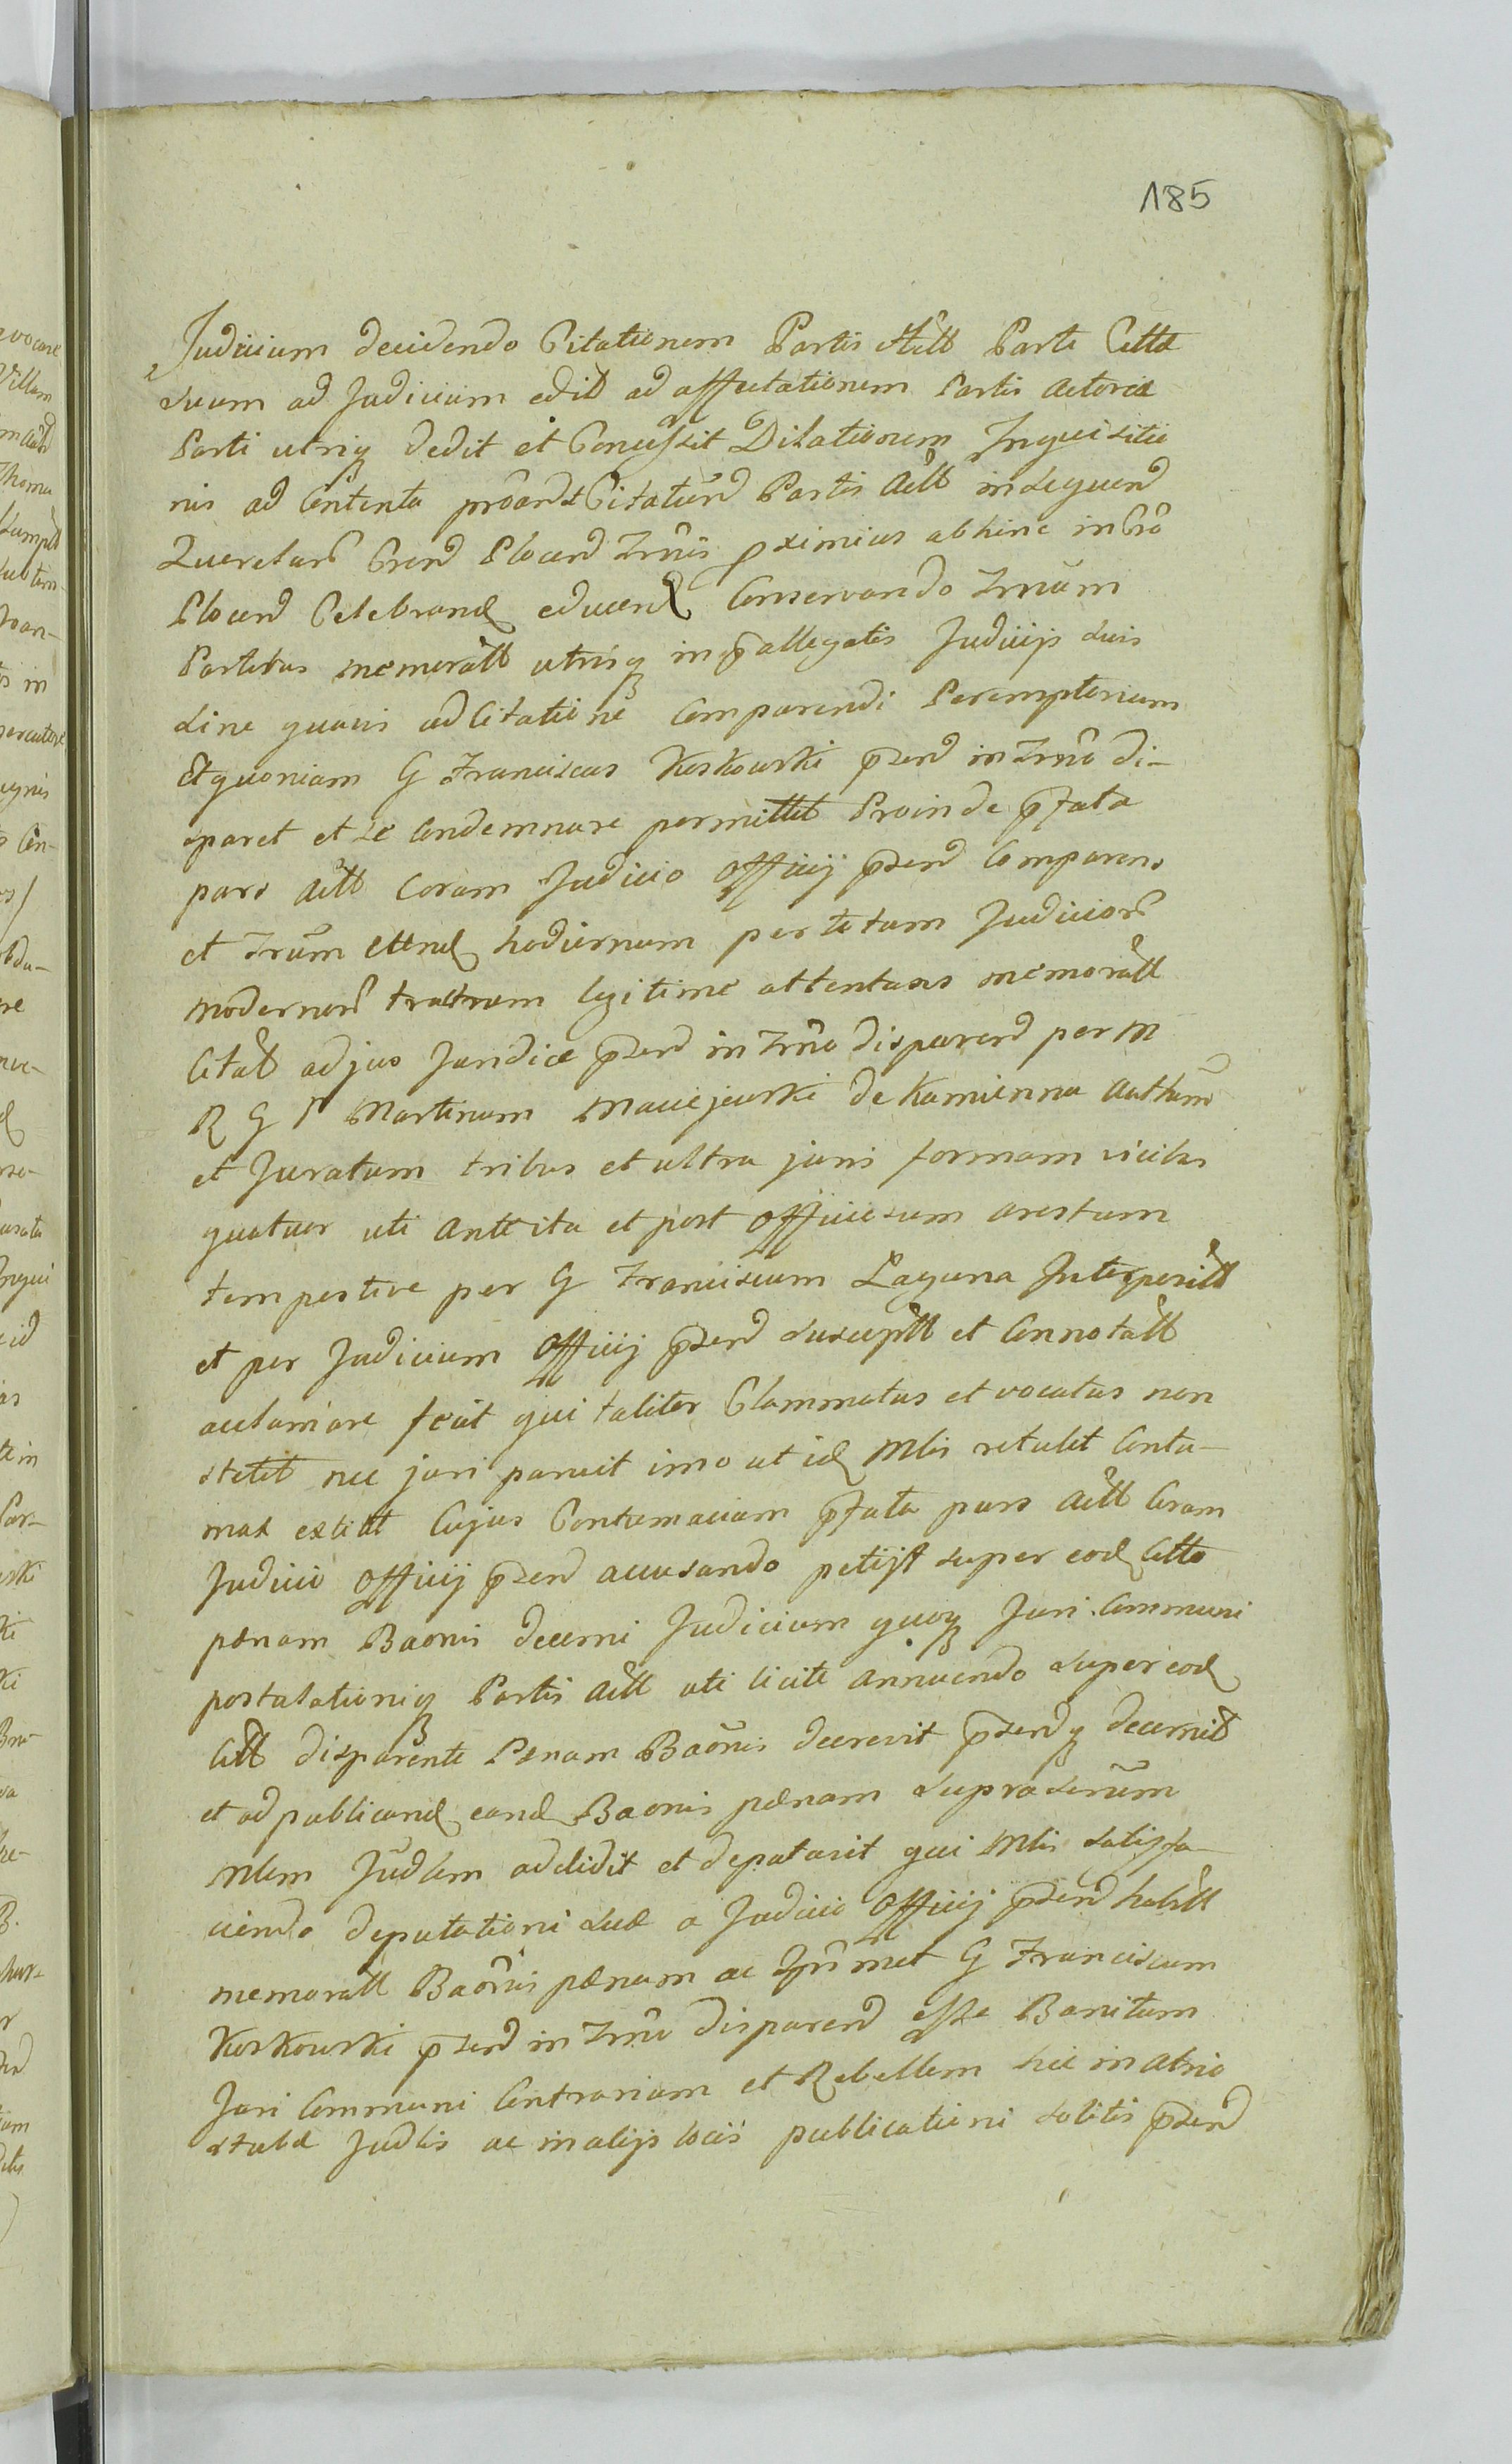 185
Judicium decidendo Citationem Partis Actt Parte Cittta
suum ad Judicium edit ad affectationem Partis Actoreæ
Parti utriq dedit et Concessit Dilationem Inquisitio
nis ad Contenta Citatũrd Partis Actt insequend
Querelarũ Crend Plocend Trmis pximius abhinc in Cro
Plocend Celebrand educend Conservando Trnum
Partibus memoratt utrisq in pallegatis Judicijs suis
sine quavis ad Citatione Comparendi Peremptorium
Et quoniam G Franciscus Koskowski pserd in Trno di-
sparet et se Condemnare permittit Proinde pfata
pars Actt Coram Judicio Officij pserd Comparens
et Trum hodiernum per totum Judiciorũ
modernorũ tractum legitime attentans memoratt
Citat ad jus Juridice pserd in Trno disparend per M
R G P Martinum Maciejewski de Kamienna Authum
et Juratum tribus et ultra juris formam vicibus
quatuor uti ante ita et post Officiosum arestum
tempestive per G Franciscum Laguna Interposit
et per Judicium Officij pserd susceptt et Connotatt
acclamare fecit qui taliter Clammatus et vocatus non
stetit nec juri paruit imo ut id Mlis retulit Contu-
max extitit Cujus Contumaciam pfata pars Actt Coram
Judicio Officij pserd accusando petijt super eod Citto
pænam Baonis decerni Judicium quoq Juri Communi
postulationiq Partis Actt uti licite annuendo super eod
Citt disparente Pænam Baonis decrevit pserdq decernit
et ad publicand eand Baonis pænam suprascrũm
Mlem Judlem addidit et deputavit qui Mlis satisfa-
ciendo deputationi suæ a Judicio Officij pserd habitt
memoratt Baonis pænam ac Ipm̃met G Franciscum
Koskowski pserd in Trno disparend esse Banitum
Juri Communi Contrarium et Rebellem hic in atrio
stubæ Judlis ac in alijs locis publicationi solitis pserd